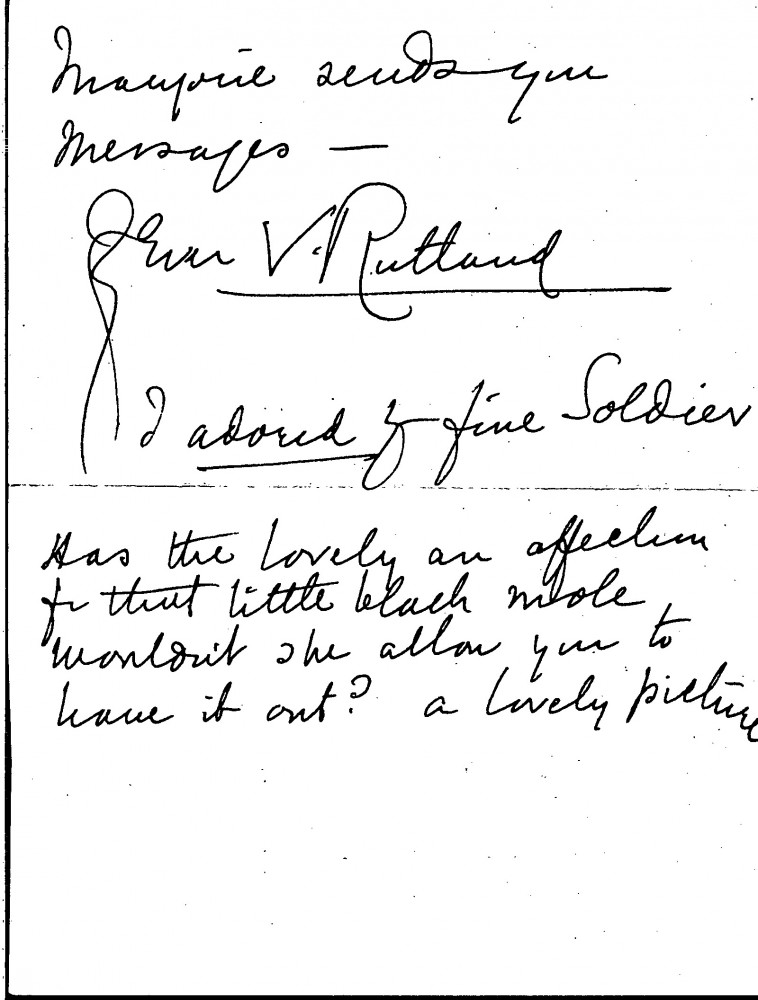 Marjorie sends you
Messages —
Ever V. Rutland
I adored yr fine Soldier
Has the lovely an affection
fr that little black mole
wouldn't she allow you to
leave it out? a lovely picture